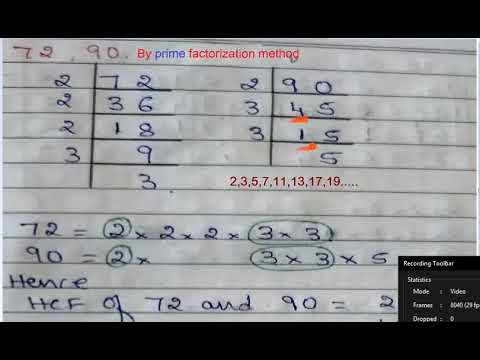 72, 90. By prime factorization method
2 | 72
2 | 36
2 | 18
3 | 9
3.
2 | 90
3 | 45
3 | 15
5
2,3,5,7,11,13,17,19,.....
72 = 2 × 2 × 2 × 3 × 3
90 = 2 × 3 × 3 × 5
Hence
HCF of 72 and 90 = 2
Recording Toolbar
Statistics
Mode : Video
Frames : 8040 (29 fp
Dropped : 0